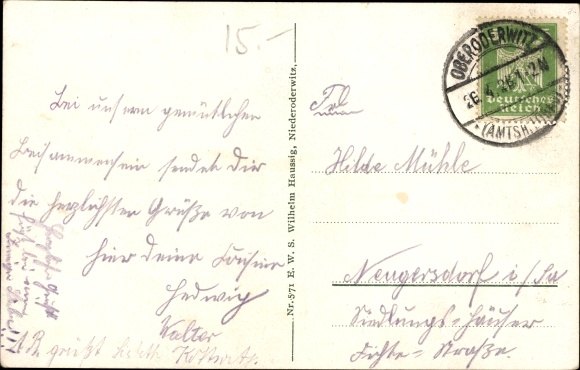 15.-
Bei unsern gemütlichen
Beisammensein sendet Dir
die herzlichsten Grüße von
hier deine Cousine
Hedwig
Walter
grüßt
Nr. 571 E. W. S. Wilhelm Haussig, Niederoderwitz.
OBERODERWITZ
26.4.26.1-2N
(AMTSH.
Deutsches
Reich
Frl.
Hilde Mühle
Neugersdorf i/Sa
Siedlungs-Häuser
Fichte-Straße.